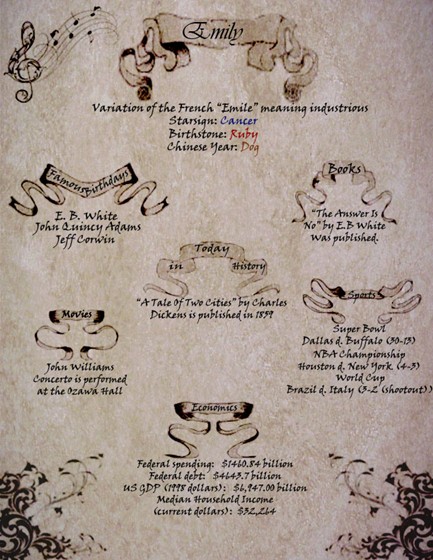 Emily
Variation of the French "Emile" meaning industrious
Starsign: Cancer
Birthstone: Ruby
Chinese Year: Dog
Famous Birthdays
E. B. White
John Quincy Adams
Jeff Corwin
Books
"The Answer Is
No" by E.B White
Was published.
Today
in History
"A Tale Of Two Cities" by Charles
Dickens is published in 1859
Movies
John Williams
Concerto is performed
at the Ozawa Hall
Sports
Super Bowl
Dallas d. Buffalo (30-13)
NBA Championship
Houston d. New York (4-3)
World Cup
Brazil d. Italy (3-2 (shootout))
Economics
Federal spending: $1460.84 billion
Federal debt: $4643.7 billion
US GDP (1998 dollars): $6,947.00 billion
Median Household Income
(current dollars): $32,264